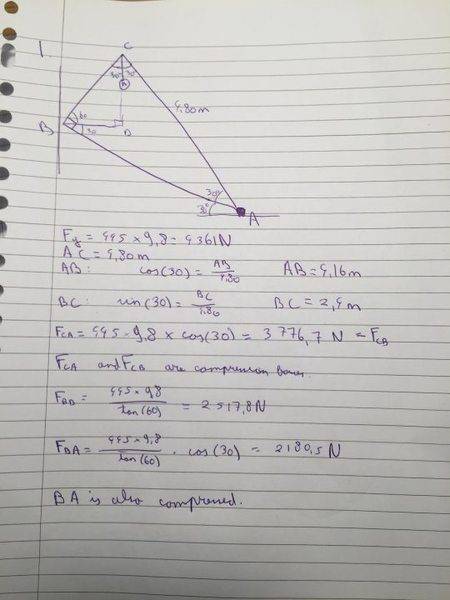 1
C
30° 30°
4,80m
60
B
30
D
30°
30°
A
Fy = 445 × 9,8 = 4361N
AC = 4,80m
AB: cos(30) = AB/4,80 AB = 4,16m
BC: sin(30) = BC/4,80 BC = 2,4m
FCA = 445 · 9,8 × cos(30) = 3776,7 N = FCB
FCA and FCB are compression
FBD = 445 × 9,8 / tan(60) = 2517,8N
FBA = 445 × 9,8 / tan(60) · cos(30) = 2180,5 N
BA is also compressed.